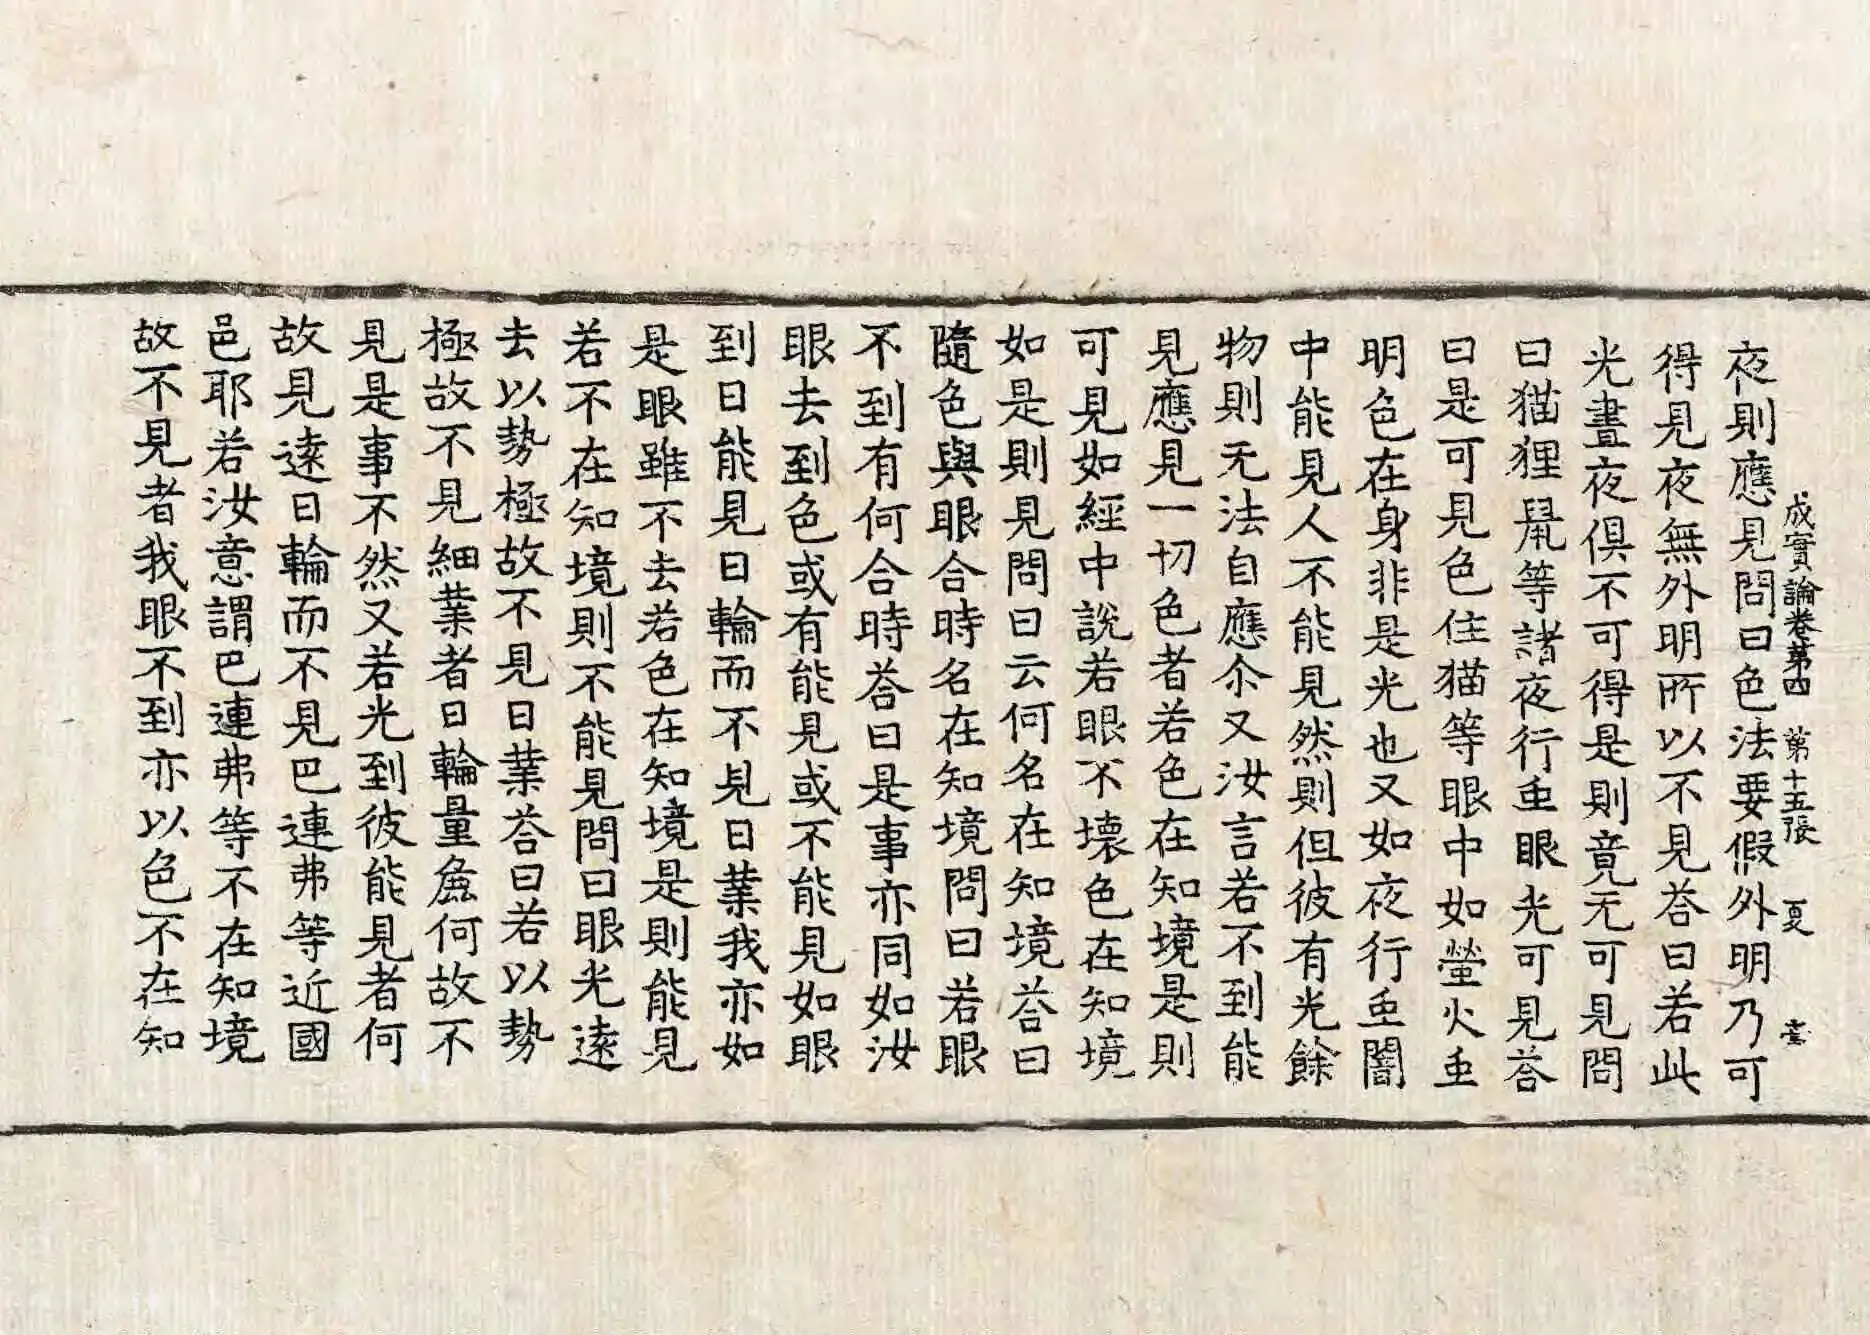 成實論卷第四　第十五張　夏
夜則應見問曰色法要假外明乃可
得見夜無外明所以不見荅曰若此
光晝夜俱不可得是則竟无可見問
曰猫狸鼠等諸夜行虫眼光可見荅
曰是可見色住猫等眼中如螢火虫
明色在身非是光也又如夜行虫闇
中能見人不能見然則但彼有光餘
物則无法自應尒又汝言若不到能
見應見一切色者若色在知境是則
可見如經中說若眼不壞色在知境
如是則見問曰云何名在知境荅曰
隨色與眼合時名在知境問曰若眼
不到有何合時荅曰是事亦同如汝
眼去到色或有能見或不能見如眼
到日能見日輪而不見日業我亦如
是眼雖不去若色在知境是則能見
若不在知境則不能見問曰眼光遠
去以勢極故不見日業荅曰若以勢
極故不見細業者日輪量麁何故不
見是事不然又若光到彼能見者何
故見遠日輪而不見巴連弗等近國
邑耶若汝意謂巴連弗等不在知境
故不見者我眼不到亦以色不在知